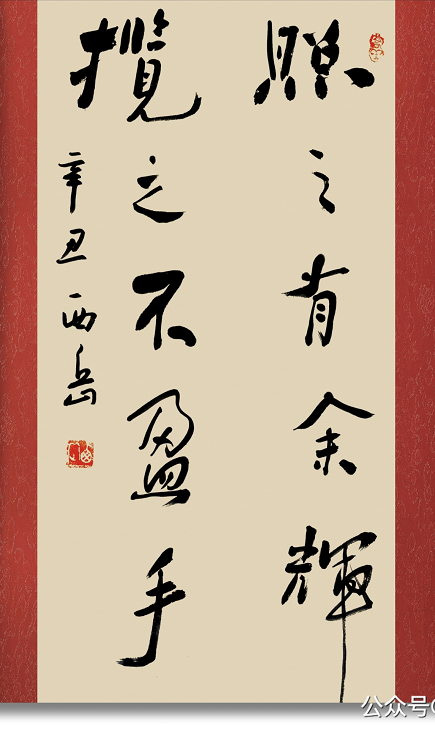 照之有余輝
揽之不盈手
辛丑西岳
公众号